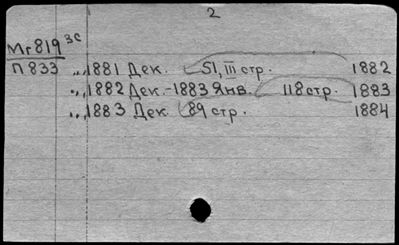 2
Мг819 зс
П833 „,1881 Дек. 51, III стр. 1882
„,1882 Дек.-1883 Янв. 118 стр. 1883
„,1883 Дек. 89 стр. 1884